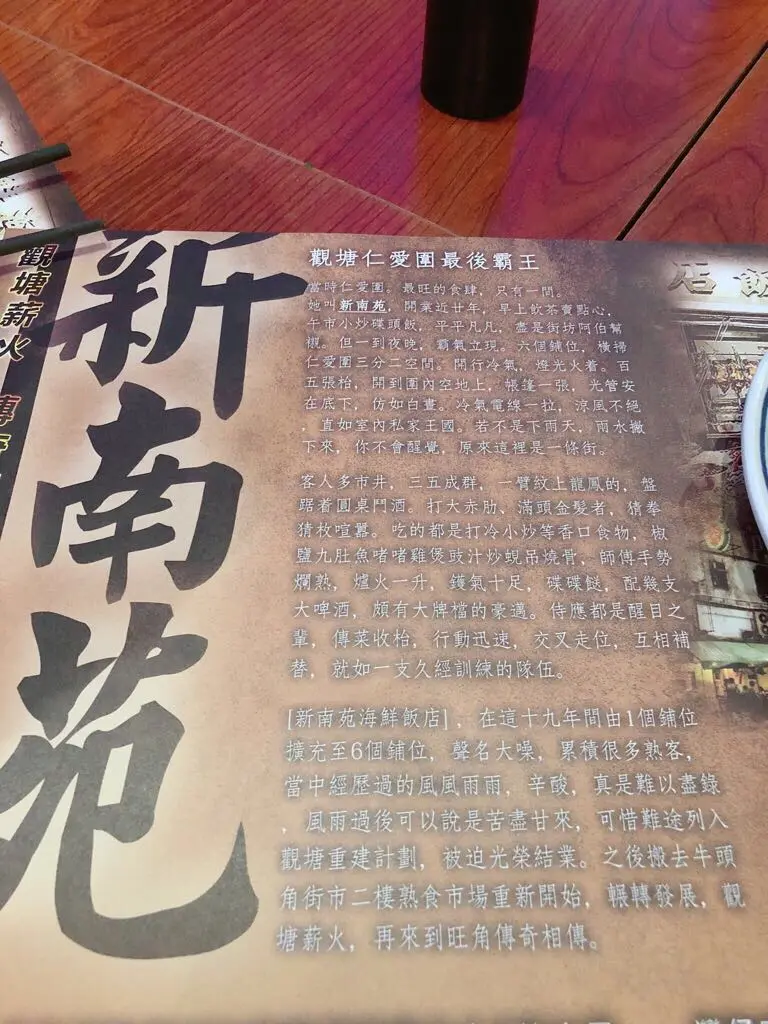 新南苑
觀塘薪火
觀塘仁愛圍最後霸王
當時仁愛圍。最旺的食肆，只有一間。
她叫新南苑，開業近廿年，早上飲茶賣點心，
午市小炒碟頭飯，平平凡凡，盡是街坊阿伯幫
襯。但一到夜晚，霸氣立現。六個鋪位，橫掃
仁愛圍三分二空間。開行冷氣，燈光火着。百
五張枱，開到圍內空地上，帳篷一張，光管安
在底下，仿如白晝。冷氣電線一拉，涼風不絕
，直如室內私家王國。若不是下雨天，雨水撇
下來，你不會醒覺，原來這裡是一條街。
客人多市井，三五成群，一臂紋上龍鳳的，盤
踞着圓桌鬥酒。打大赤肋、滿頭金髮者，猜拳
猜枚喧囂。吃的都是打冷小炒等香口食物，椒
鹽九肚魚啫啫雞煲豉汁炒蜆吊燒骨，師傅手勢
爛熟，爐火一升，鑊氣十足，碟碟餸，配幾支
大啤酒，頗有大牌檔的豪邁。侍應都是醒目之
輩，傳菜收枱，行動迅速，交叉走位，互相補
替，就如一支久經訓練的隊伍。
[新南苑海鮮飯店]，在這十九年間由1個鋪位
擴充至6個鋪位，聲名大噪，累積很多熟客，
當中經歷過的風風雨雨，辛酸，真是難以盡錄
，風雨過後可以說是苦盡甘來，可惜難途列入
觀塘重建計劃，被迫光榮結業。之後搬去牛頭
角街市二樓熟食市場重新開始，輾轉發展，觀
塘薪火，再來到旺角傳奇相傳。